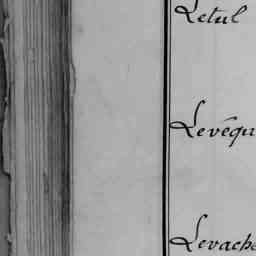 Letul
Levêqu
Levache